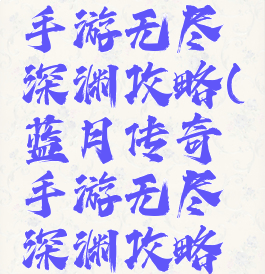 手游无尽
深渊攻略(
蓝月传奇
手游无尽
深渊攻略